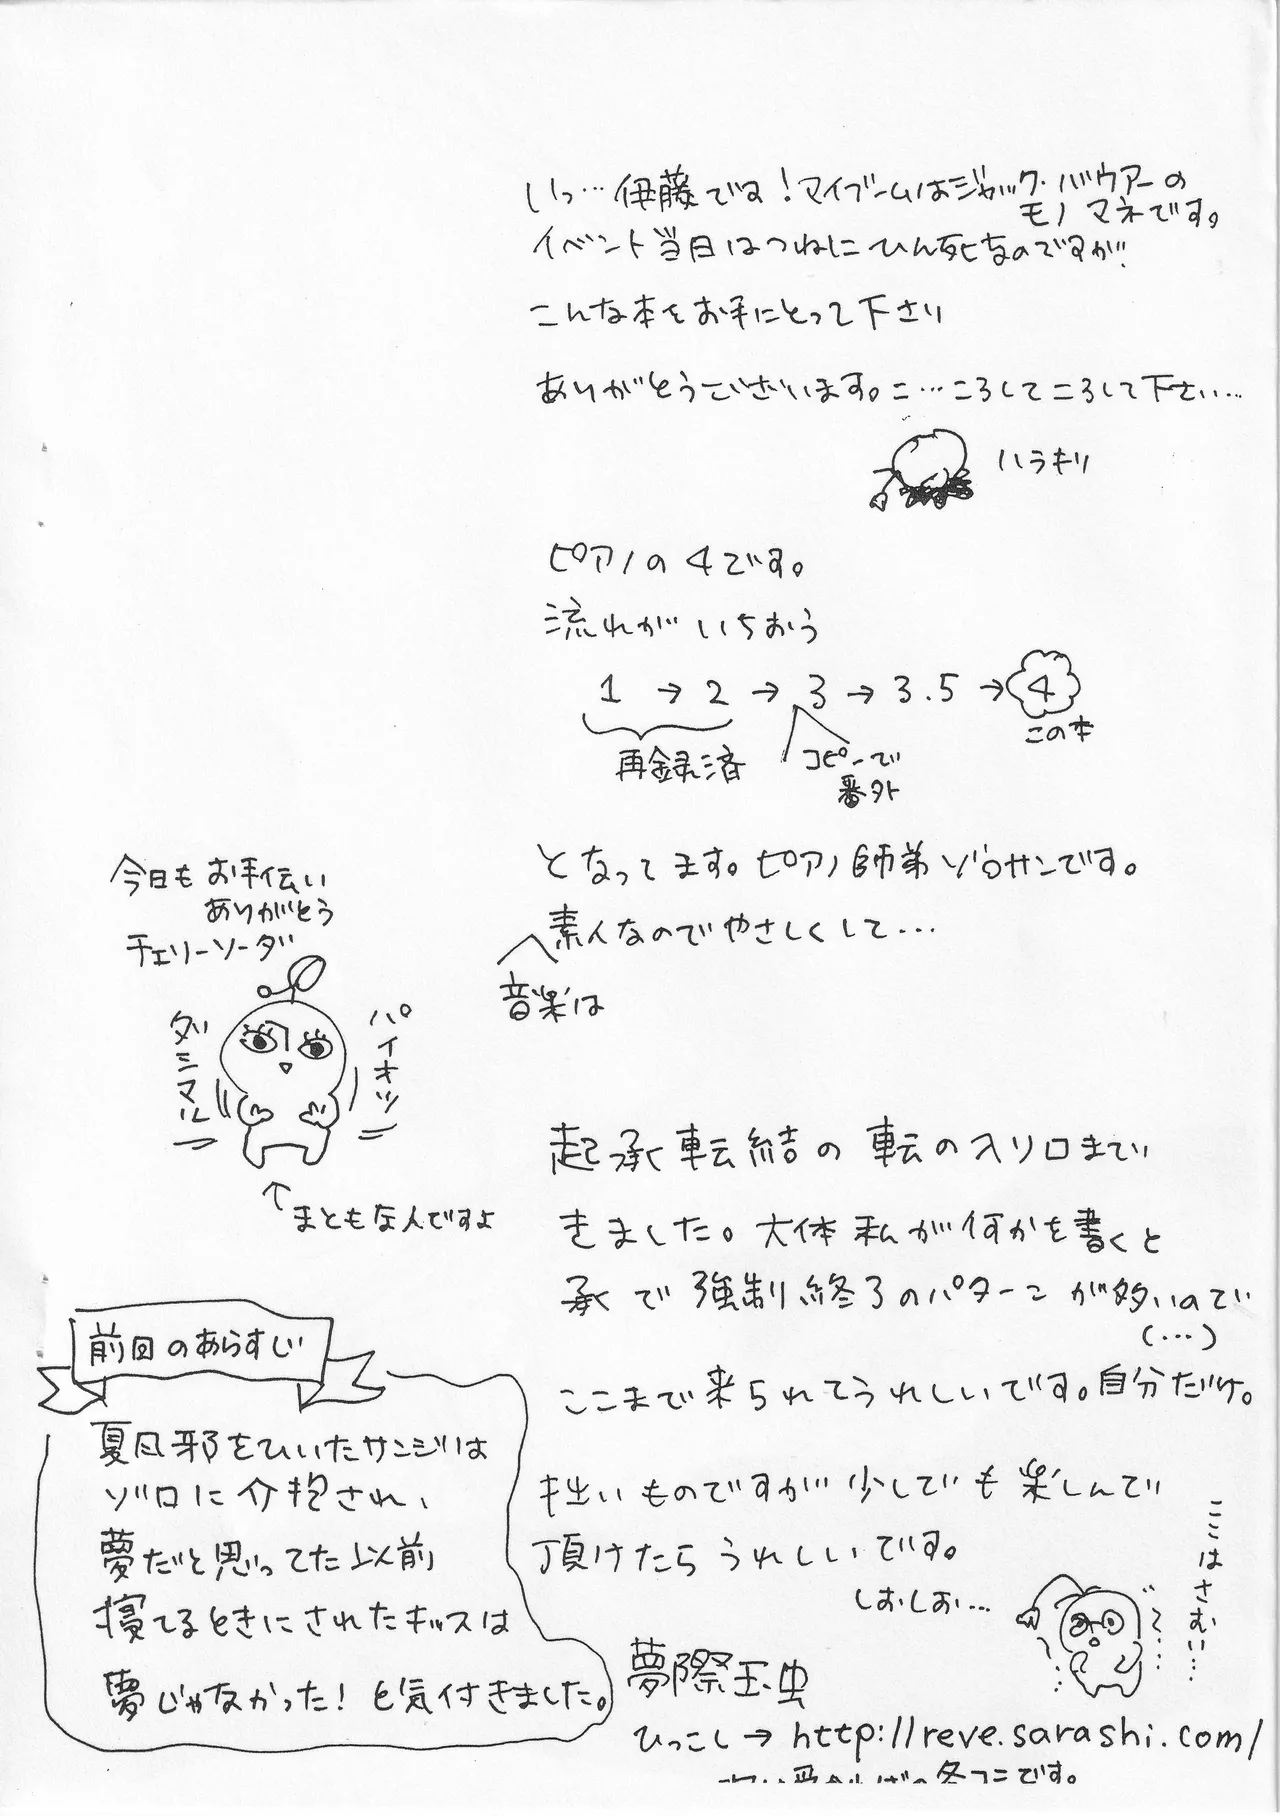 いっ…伊藤です！マイブームはジャック・バウアーの
モノマネです。
イベント当日はつねにひん死なのですが
こんな本をお手にとって下さり
ありがとうございます。こ…ころしてころして下さい…
ハラキリ
ピアノの4です。
流れがいちおう
1→2→3→3.5→4
再録済
コピーで
番外
この本
となってます。ピアノ師弟ゾロサンです。
音楽は
素人なのでやさしくして…
今日もお手伝い
ありがとう
チェリーソーダ
パイオツ
ダミマル
↑まともな人ですよ
起承転結の転の入り口まで
きました。大体私が何かを書くと
承で強制終了のパターンが多いので
(…)
ここまで来られてうれしいです。自分だけ。
拙いものですが少しでも楽しんで
頂けたらうれしいです。
しおしお…
ここはさむい…
前回のあらすじ
夏風邪をひいたサンジは
ゾロに介抱され、
夢だと思ってた以前
寝てるときにされたキッスは
夢じゃなかった！と気付きました。
夢際玉虫
ひっこし→http://reve.sarashi.com/